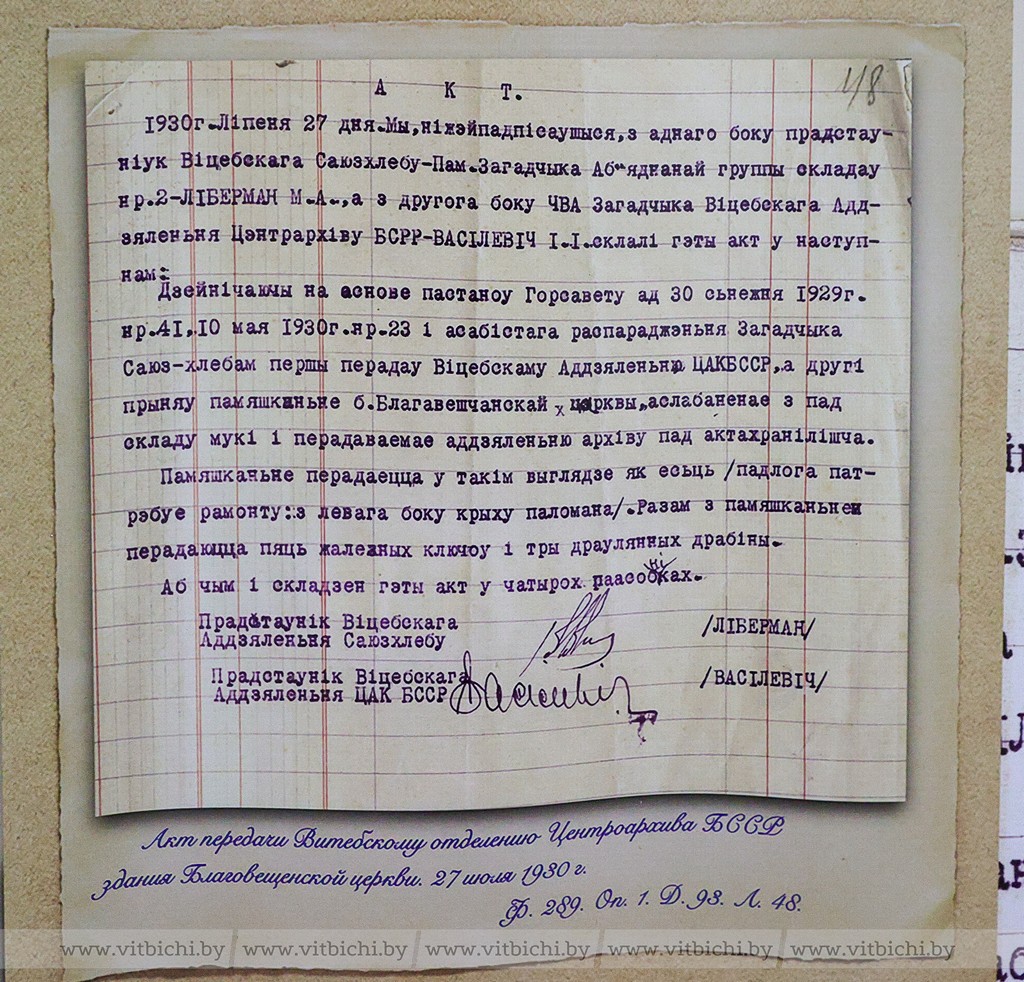 48
А К Т.
1930г.Ліпеня 27 дня.Мы,ніжэйпадпісаушыся,з аднаго боку прадстау-
ніук Віцебскага Саюзхлебу-Пам.Загадчыка Аб"яднанай группы складау
нр.2-ЛІБЕРМАН М.А.,а з другога боку ЧВА Загадчыка Віцебскага Адд-
зяленьня Цэнтрархіву БСРР-ВАСІЛЕВІЧ І.І.склалі гэты акт у наступ-
нам:
Дзейнічаючы на аснове пастаноу Горсавету ад 30 сьнежня 1929г.
нр.41,10 мая 1930г.нр.23 і асабістага распараджэньня Загадчыка
Саюз-хлебам першы перадау Віцебскаму Аддзяленьню ЦАКБССР,а другі
прыняу памяшканьне б.Благавешчанскай х царквы,аслабаненае з пад
складу мукі і перадаваемае аддзяленьню архіву пад актахранілішча.
Памяшканьне перадаецца у такім выглядзе як есьць /падлога пат-
рэбуе рамонту:з левага боку крыху паломана/.Разам з памяшканьнем
перадаюцца пяць жалезных ключоу і тры драулянных драбіны.
Аб чым і складзен гэты акт у чатырох паасобніках.
Прадстаунік Віцебскага
Аддзяленьня Саюзхлебу /ЛІБЕРМАН/
Прадстаунік Віцебскага
Аддзяленьня ЦАК БССР Васілевіч /ВАСІЛЕВІЧ/
Акт передачи Витебскому отделению Центроархива БССР
здания Благовещенской церкви. 27 июля 1930 г.
Ф. 289. Оп. 1. Д. 93. Л. 48.
www.vitbichi.by www.vitbichi.by www.vitbichi.by www.vitbichi.by www.vitbichi.by